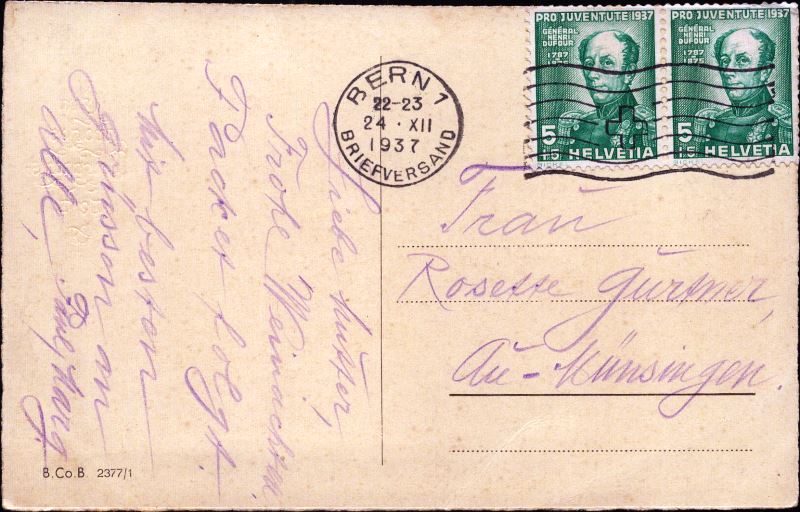 PRO JUVENTUTE 1937
GÉNÉRAL
HENRI
DUFOUR
1787
1875
5
+5 HELVETIA
PRO JUVENTUTE 1937
GÉNÉRAL
HENRI
DUFOUR
1787
1875
5
+5 HELVETIA
BERN 1
22-23
24 · XII
1937
BRIEFVERSAND
Liebe Mutter,
Frohe
Packet folgt.
besten
an
alle,
Frau
Rosette Gürtner,
Au-Münsingen.
B.Co.B. 2377/1